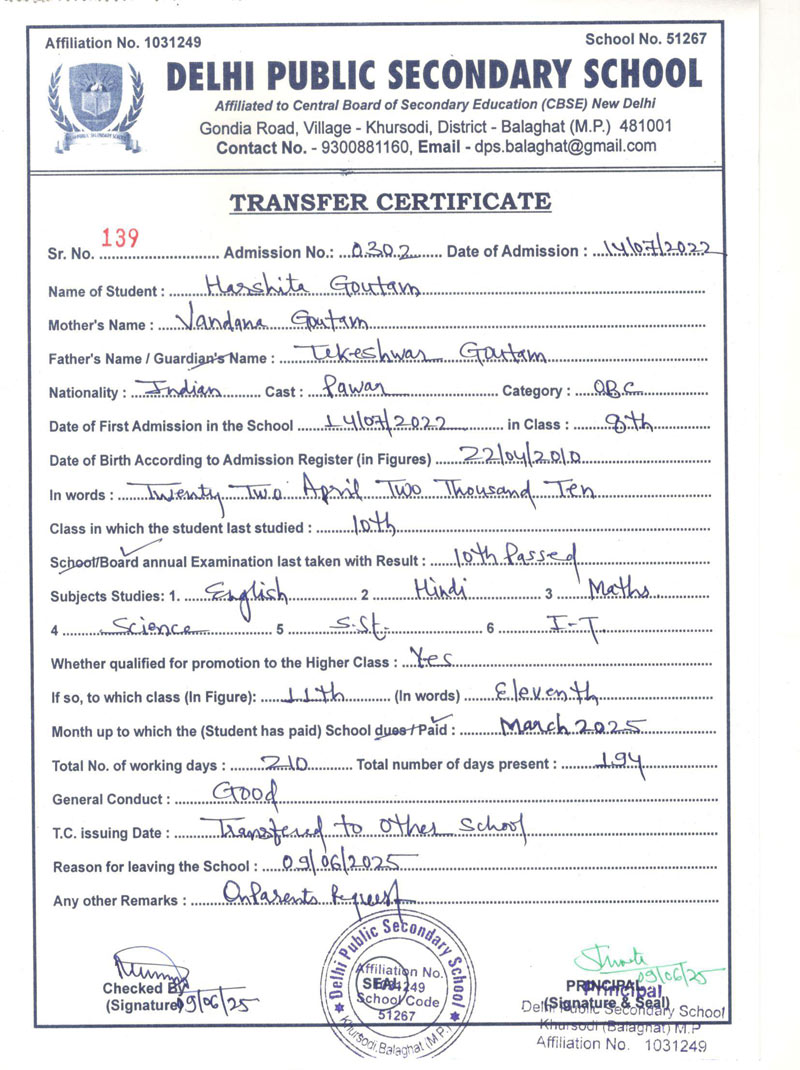 Affiliation No. 1031249 School No. 51267
DELHI PUBLIC SECONDARY SCHOOL
Affiliated to Central Board of Secondary Education (CBSE) New Delhi
Gondia Road, Village - Khursodi, District - Balaghat (M.P.) 481001
Contact No. - 9300881160, Email - dps.balaghat@gmail.com
TRANSFER CERTIFICATE
Sr. No. 139 Admission No.: 0302 Date of Admission : 14/07/2022
Name of Student : Harshita Goutam
Mother's Name : Vandana Goutam
Father's Name / Guardian's Name : Tekeshwar Goutam
Nationality : Indian Cast : Pawar Category : OBC
Date of First Admission in the School 14/07/2022 in Class : 8th
Date of Birth According to Admission Register (in Figures) 22/04/2010
In words : Twenty Two April Two Thousand Ten
Class in which the student last studied : 10th
School/Board annual Examination last taken with Result : 10th Passed
Subjects Studies: 1. English 2 Hindi 3 Maths
4 Science 5 S.St. 6 I-T
Whether qualified for promotion to the Higher Class : Yes
If so, to which class (In Figure): 11th (In words) Eleventh
Month up to which the (Student has paid) School dues/Paid : March 2025
Total No. of working days : 210 Total number of days present : 194
General Conduct : Good
T.C. issuing Date : Transfered to other school
Reason for leaving the School : 09/06/2025
Any other Remarks : On Parents Request
Checked By
(Signature) 09/06/25
Delhi Public Secondary School
Affiliation No.
1031249
SEAL
School Code
51267
Khursodi, Balaghat (M.P.)
09/06/25
PRINCIPAL
(Signature & Seal)
Principal
Delhi Public Secondary School
Khursodi (Balaghat) M.P
Affiliation No. 1031249